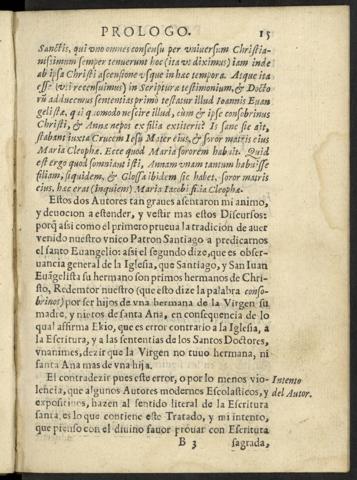 PROLOGO. 15
Sanctis, qui vno omnes consensu per vniuersum Christia-
nissimum semper tenuerunt hoc (ita vt diximus) iam inde
ab ipsa Christi ascensione vsque in hac tempora. Atque ita
esse (vti recensuimus) in Scripturæ testimonium, & Docto
rū adducemus sententias primo testatur illud Ioannis Euan
gelistæ, qui quomodo nescire illud, cùm & ipse consobrinus
Christi, & Annæ nepos ex filia extiterit? Is sanè sic ait,
stabant iuxta Crucem Iesu Mater eius, & soror matris eius
Maria Cleophæ. Ecce quod Maria sororem habuit. Quid
est ergo quod somniant isti, Annam vnam tantum habuisse
filiam, siquidem, & Glossa ibidem sic habet, soror matris
eius, hæc erat (inquiem) Maria Iacobi filia Cleophæ.
Estos dos Autores tan graues asentaron mi animo,
y deuocion a estender, y vestir mas estos Discursos:
porq̄ asi como el primero prueua la tradicion de auer
venido nuestro vnico Patron Santiago a predicarnos
el santo Euangelio: asi el segundo dize, que es obser-
uancia general de la Iglesia, que Santiago, y San Iuan
Euāgelista su hermano son primos hermanos de Chri-
sto, Redemtor nuestro (que esto dize la palabra conso-
brinos) por ser hijos de vna hermana de la Virgen su
madre, y nietos de santa Ana, en consequencia de lo
qual afirma Ekio, que es error contrario a la Iglesia, a
la Escritura, y a las sententias de los Santos Doctores,
vnanimes, dezir que la Virgen no tuuo hermana, ni
santa Ana mas de vna hija.
El contradezir pues este error, o por lo menos vio-
lencia, que algunos Autores modernos Escolasticos, y
expositiuos, hazen al sentido literal de la Escritura
santa, es lo que contiene este Tratado, y mi intento,
que pienso con el diuino fauor prouar con Escritura
Intento
del Autor.
B 3 sagrada,